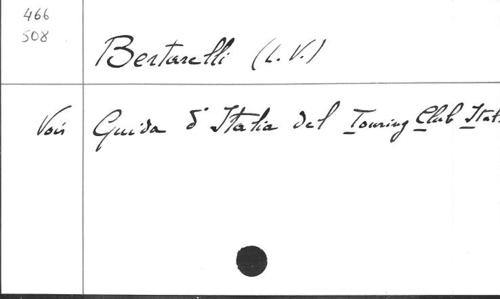 466
508
Bertarelli (L.V.)
Voir Guida d'Italia del Touring Club Ital